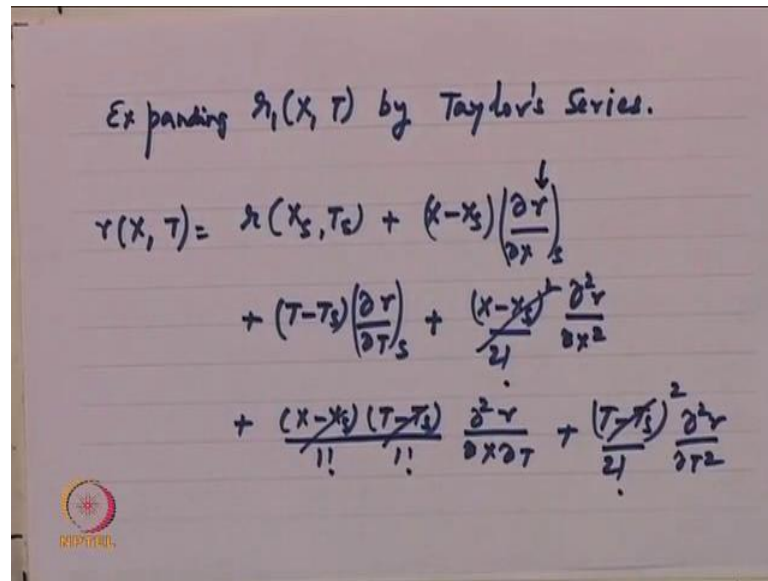 Expanding r₁(X, T) by Taylor's Series.
r(X, T) = r(Xs, Ts) + (X-Xs) (∂r/∂X)s
+ (T-Ts) (∂r/∂T)s + (X-Xs)²/2! ∂²r/∂X²
+ (X-Xs)/1! (T-Ts)/1! ∂²r/∂X∂T + (T-Ts)²/2! ∂²r/∂T²
NPTEL